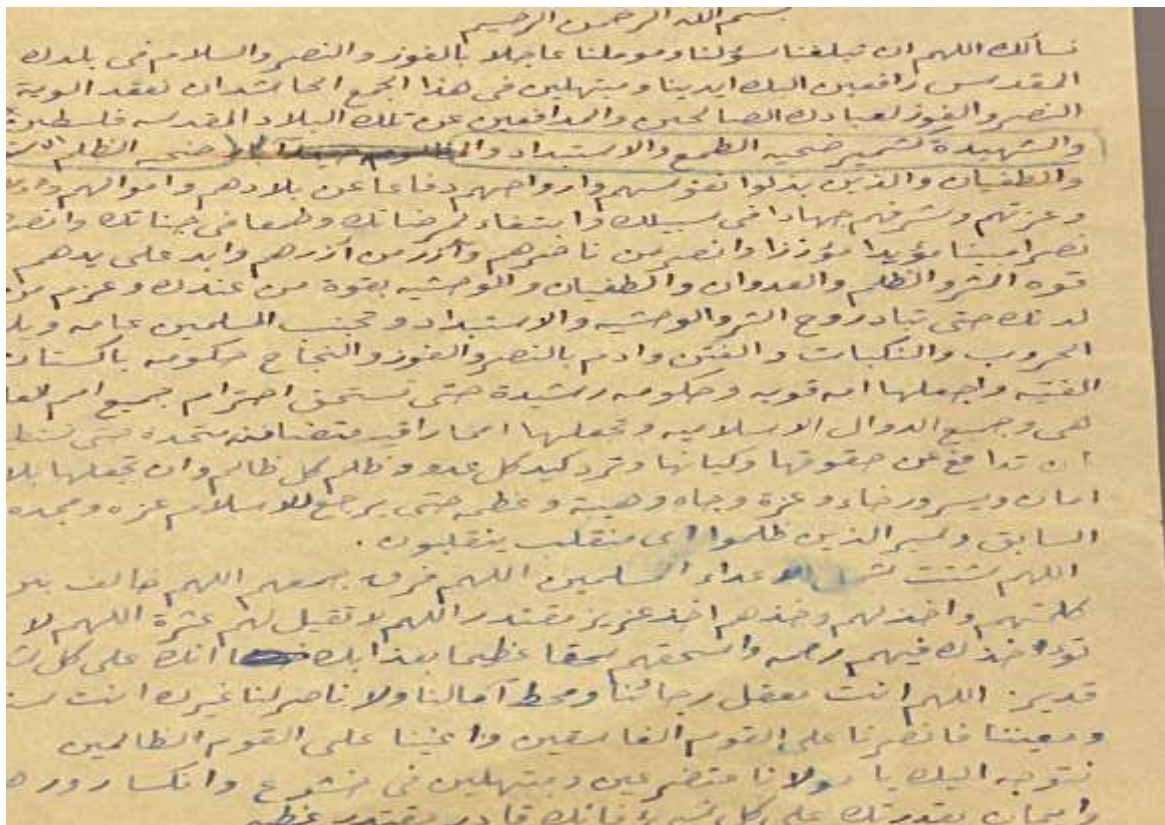 بسم الله الرحمن الرحيم
نسألك اللهم ان تبلغنا سؤلنا وموملنا عاجلا بالفوز والنصر والسلام فى بلدك
المقدس رافعين اليك ايدينا ومبتهلين فى هذا الجمع الحاشد ان تعقد الوية
النصر والفوز لعبادك الصالحين والمدافعين عن تلك البلاد المقدسه فلسطين
والشهيدة كشمير ضحيه الطمع والاستبداد ضحيه الظلم
والطغيان والذين بذلوا نفوسهم وارواحهم دفاعا عن بلادهم واموالهم
وعزتهم وشرفهم جهادا فى سبيلك وابتغاء لمرضاتك وطمعا فى جناتك وانصر
نصرا مبينا مؤيدا مؤزرا وانصر من ناصرهم وآزر من آزرهم وابد على يدهم
قوه الشر والظلم والعدوان والطغيان والوحشيه بقوة من عندك وعزم من
لدنك حتى تباد روح الشر والوحشيه والاستبداد وتجنب المسلمين عامه
الحروب والنكبات والفتن وادم بالنصر والفوز والنجاح حكومه باكستان
الفتيه واجعلها امه قويه وحكومه رشيدة حتى تستحق احترام جميع امم
هى وجميع الدوال الاسلاميه وتجعلها امما راقيه متضافنه متحده حتى
ان تدافع عن حقوقها وكيانها وترد كيد كل عدو وظلم كل ظالم وان تجعلها
امان ويسر ورخاء وعزة وجاه وهيبة وعظمه حتى يرجع للاسلام عزه ومجده
السابق الذين ظلموا اى منقلب ينقلبون .
اللهم شتت اعداء المسلمين اللهم فرق جمعهم اللهم خالف
كلمتهم واخذلهم وخذهم اخذ عزيز مقتدر اللهم لا تقيل لهم عثرة اللهم لا
فيهم رحمه واسحقهم سحقا عظيما بعذابك انك على كل
قدير اللهم انت معقل رجائنا ومحط آمالنا ولا ناصر لنا غيرك انت
ومعيننا فانصرنا على القوم الفاسقين واعنا على القوم الظالمين
نتوجه اليك يا مولانا متضرعين ومبتهلين فى خشوع وانكسار
وايمان بقدرتك على كل شىء فانك قادر مقتدر عظيم